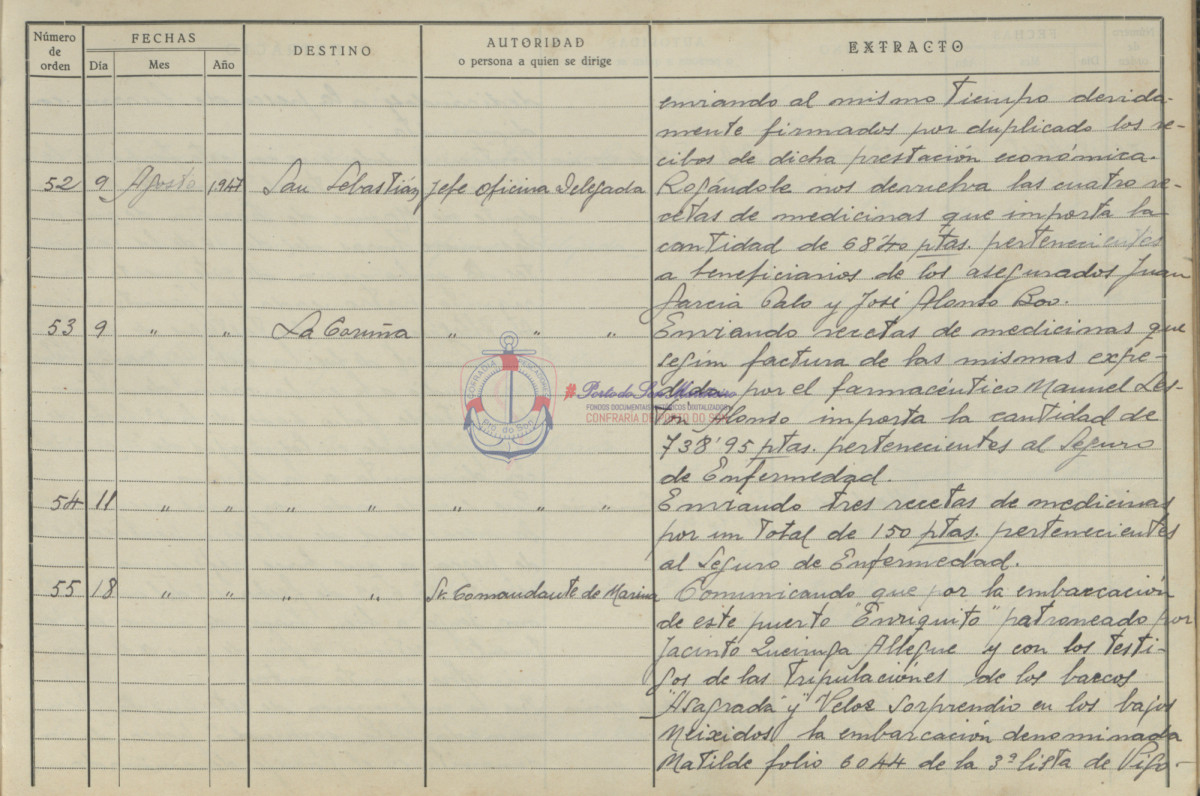 Número de orden
FECHAS
Día Mes Año
DESTINO
AUTORIDAD
o persona a quien se dirige
EXTRACTO
enviando al mismo tiempo devida-
mente firmados por duplicado los re-
cibos de dicha prestación económica.
52 9 Agosto 1947 San Sebastián Jefe Oficina Delegada Rogándole nos devuelva las cuatro re-
cetas de medicinas que importa la
cantidad de 68'40 ptas. pertenecientes
a beneficiarios de los asegurados Juan
Garcia Calo y José Alonso Boo.
53 9 " " La Coruña " " " Enviando recetas de medicinas que
segun factura de las mismas expe-
dida por el farmacéutico Manuel Les-
ton Alonso importa la cantidad de
738'95 ptas. pertenecientes al Seguro
de Enfermedad.
54 11 " " " " " " " Enviando tres recetas de medicinas
por un total de 150 ptas. pertenecientes
al Seguro de Enfermedad.
55 18 " " " " Sr. Comandante de Marina Comunicando que por la embarcación
de este puerto "Enriquito" patroneado por
Jacinto Queiruga Allegue y con los testi-
gos de las tripulaciónes de los barcos
y "Veloz sorprendio en los bajos
Meixidos la embarcación denominada
Matilde folio 6044 de la 3ª lista de Vigo-
#Porto do Son Mariñeiro
FONDOS DOCUMENTAIS HISTÓRICOS DIGITALIZADOS
CONFRARÍA DE PORTO DO SON
Pto. do Son